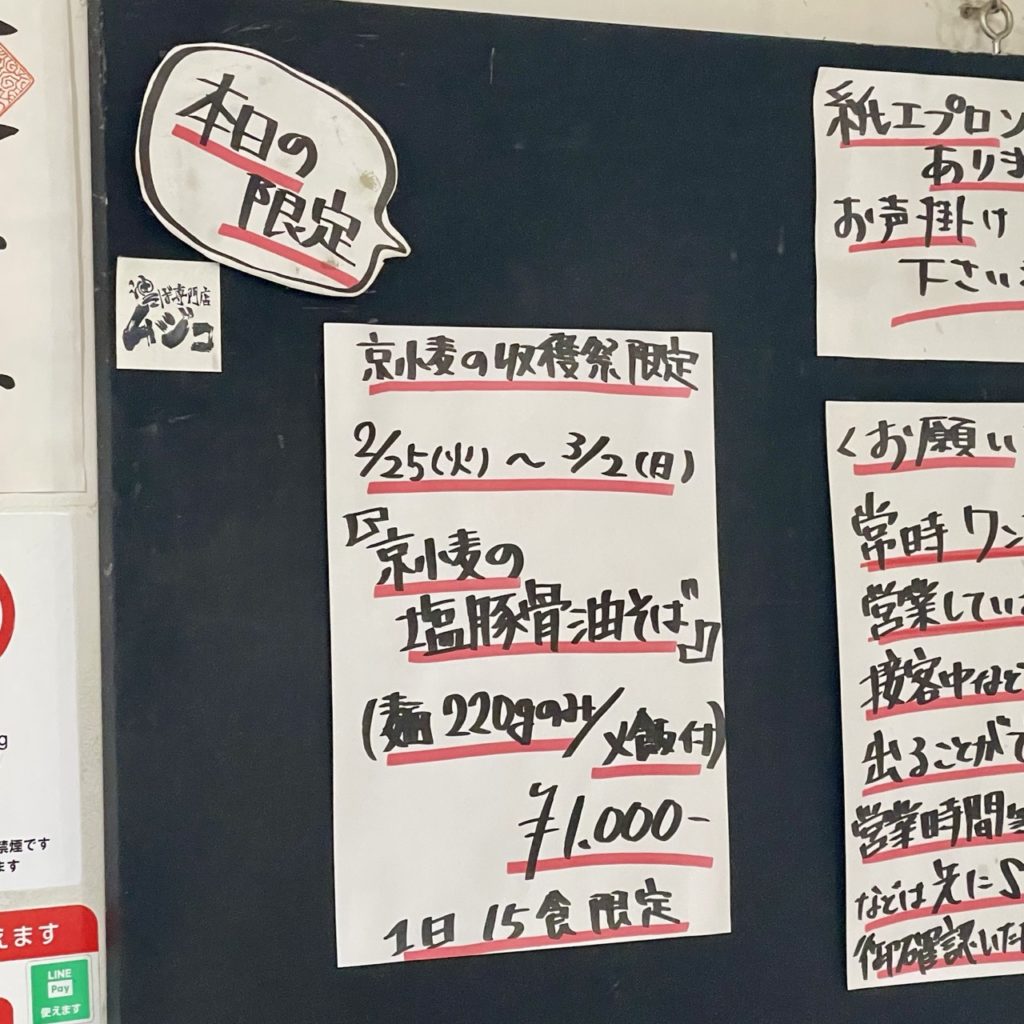 本日の
限定
油そば専門店
ムジコ
京小麦の収穫祭限定
2/25(火)～3/2(日)
『京小麦の
塩豚骨油そば』
(麺220gのみ/〆飯付)
¥1.000-
1日15食限定
紙エプロン
ありま
お声掛け
下さい
<お願い
常時ワン
営業してい
接客中など
出ることがで
営業時間等
などは先にS
御確認いた
g
禁煙です
ます
えます
LINE
Pay
使えます